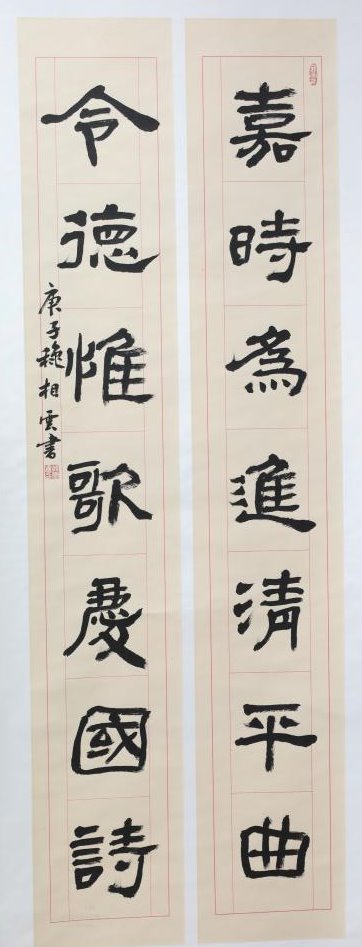 嘉時為進清平曲
令德惟歌慶國詩
庚子穐相雲書